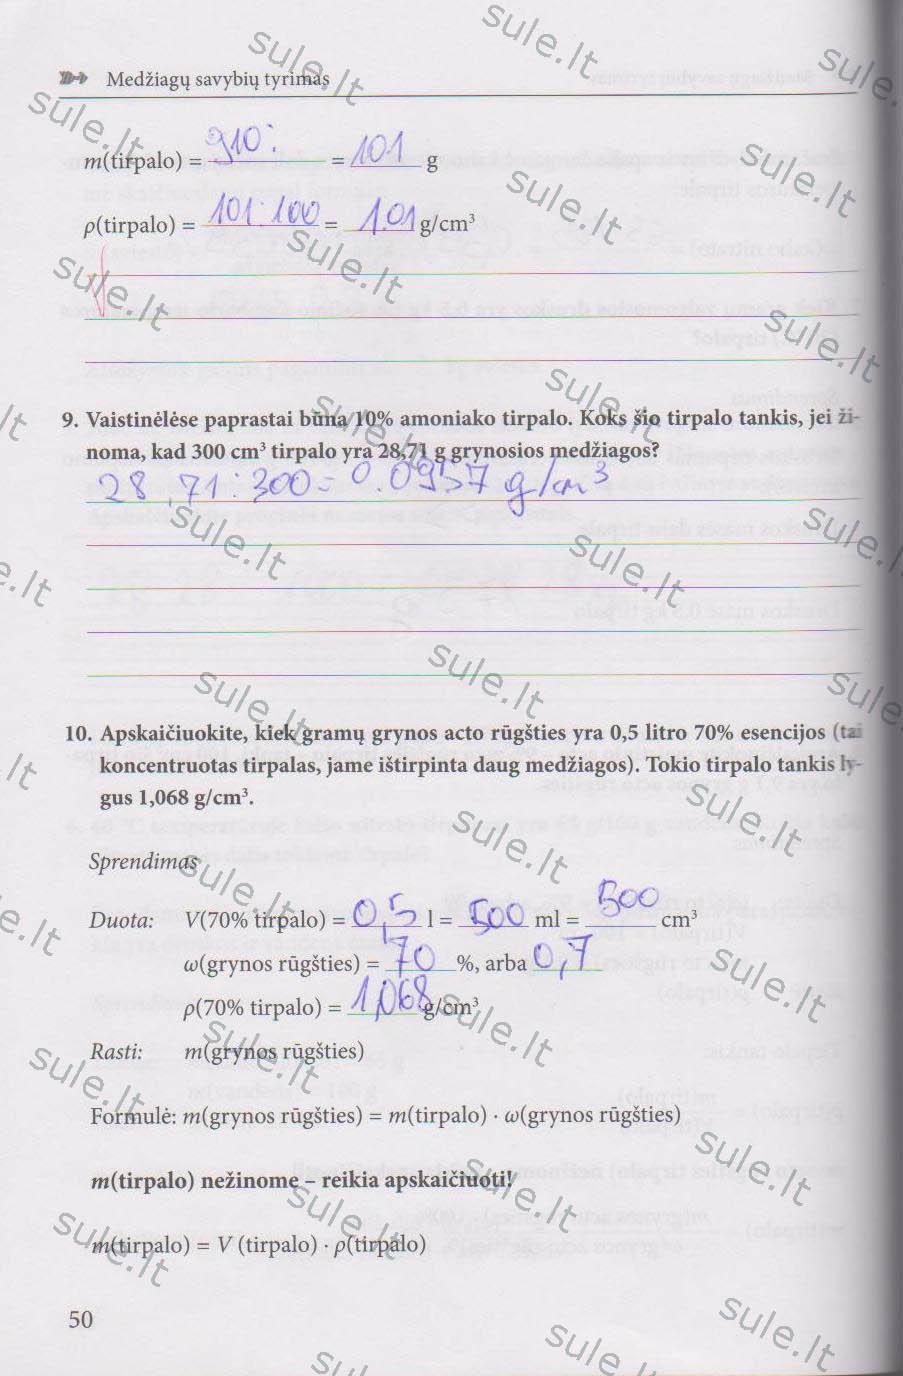 Medžiagų savybių tyrimas
m(tirpalo) = 910: = 101 g
ρ(tirpalo) = 101:100 = 1.01 g/cm³
9. Vaistinėlėse paprastai būna 10% amoniako tirpalo. Koks šio tirpalo tankis, jei ži-
noma, kad 300 cm³ tirpalo yra 28,71 g grynosios medžiagos?
28,71:300=0.0957 g/cm³
10. Apskaičiuokite, kiek gramų grynos acto rūgšties yra 0,5 litro 70% esencijos (tai
koncentruotas tirpalas, jame ištirpinta daug medžiagos). Tokio tirpalo tankis ly-
gus 1,068 g/cm³.
Sprendimas
Duota: V(70% tirpalo) = 0,5 l = 500 ml = 500 cm³
ω(grynos rūgšties) = 70 %, arba 0,7
ρ(70% tirpalo) = 1,068 g/cm³
Rasti: m(grynos rūgšties)
Formulė: m(grynos rūgšties) = m(tirpalo) · ω(grynos rūgšties)
m(tirpalo) nežinome – reikia apskaičiuoti!
m(tirpalo) = V (tirpalo) · ρ(tirpalo)
50
sule.lt